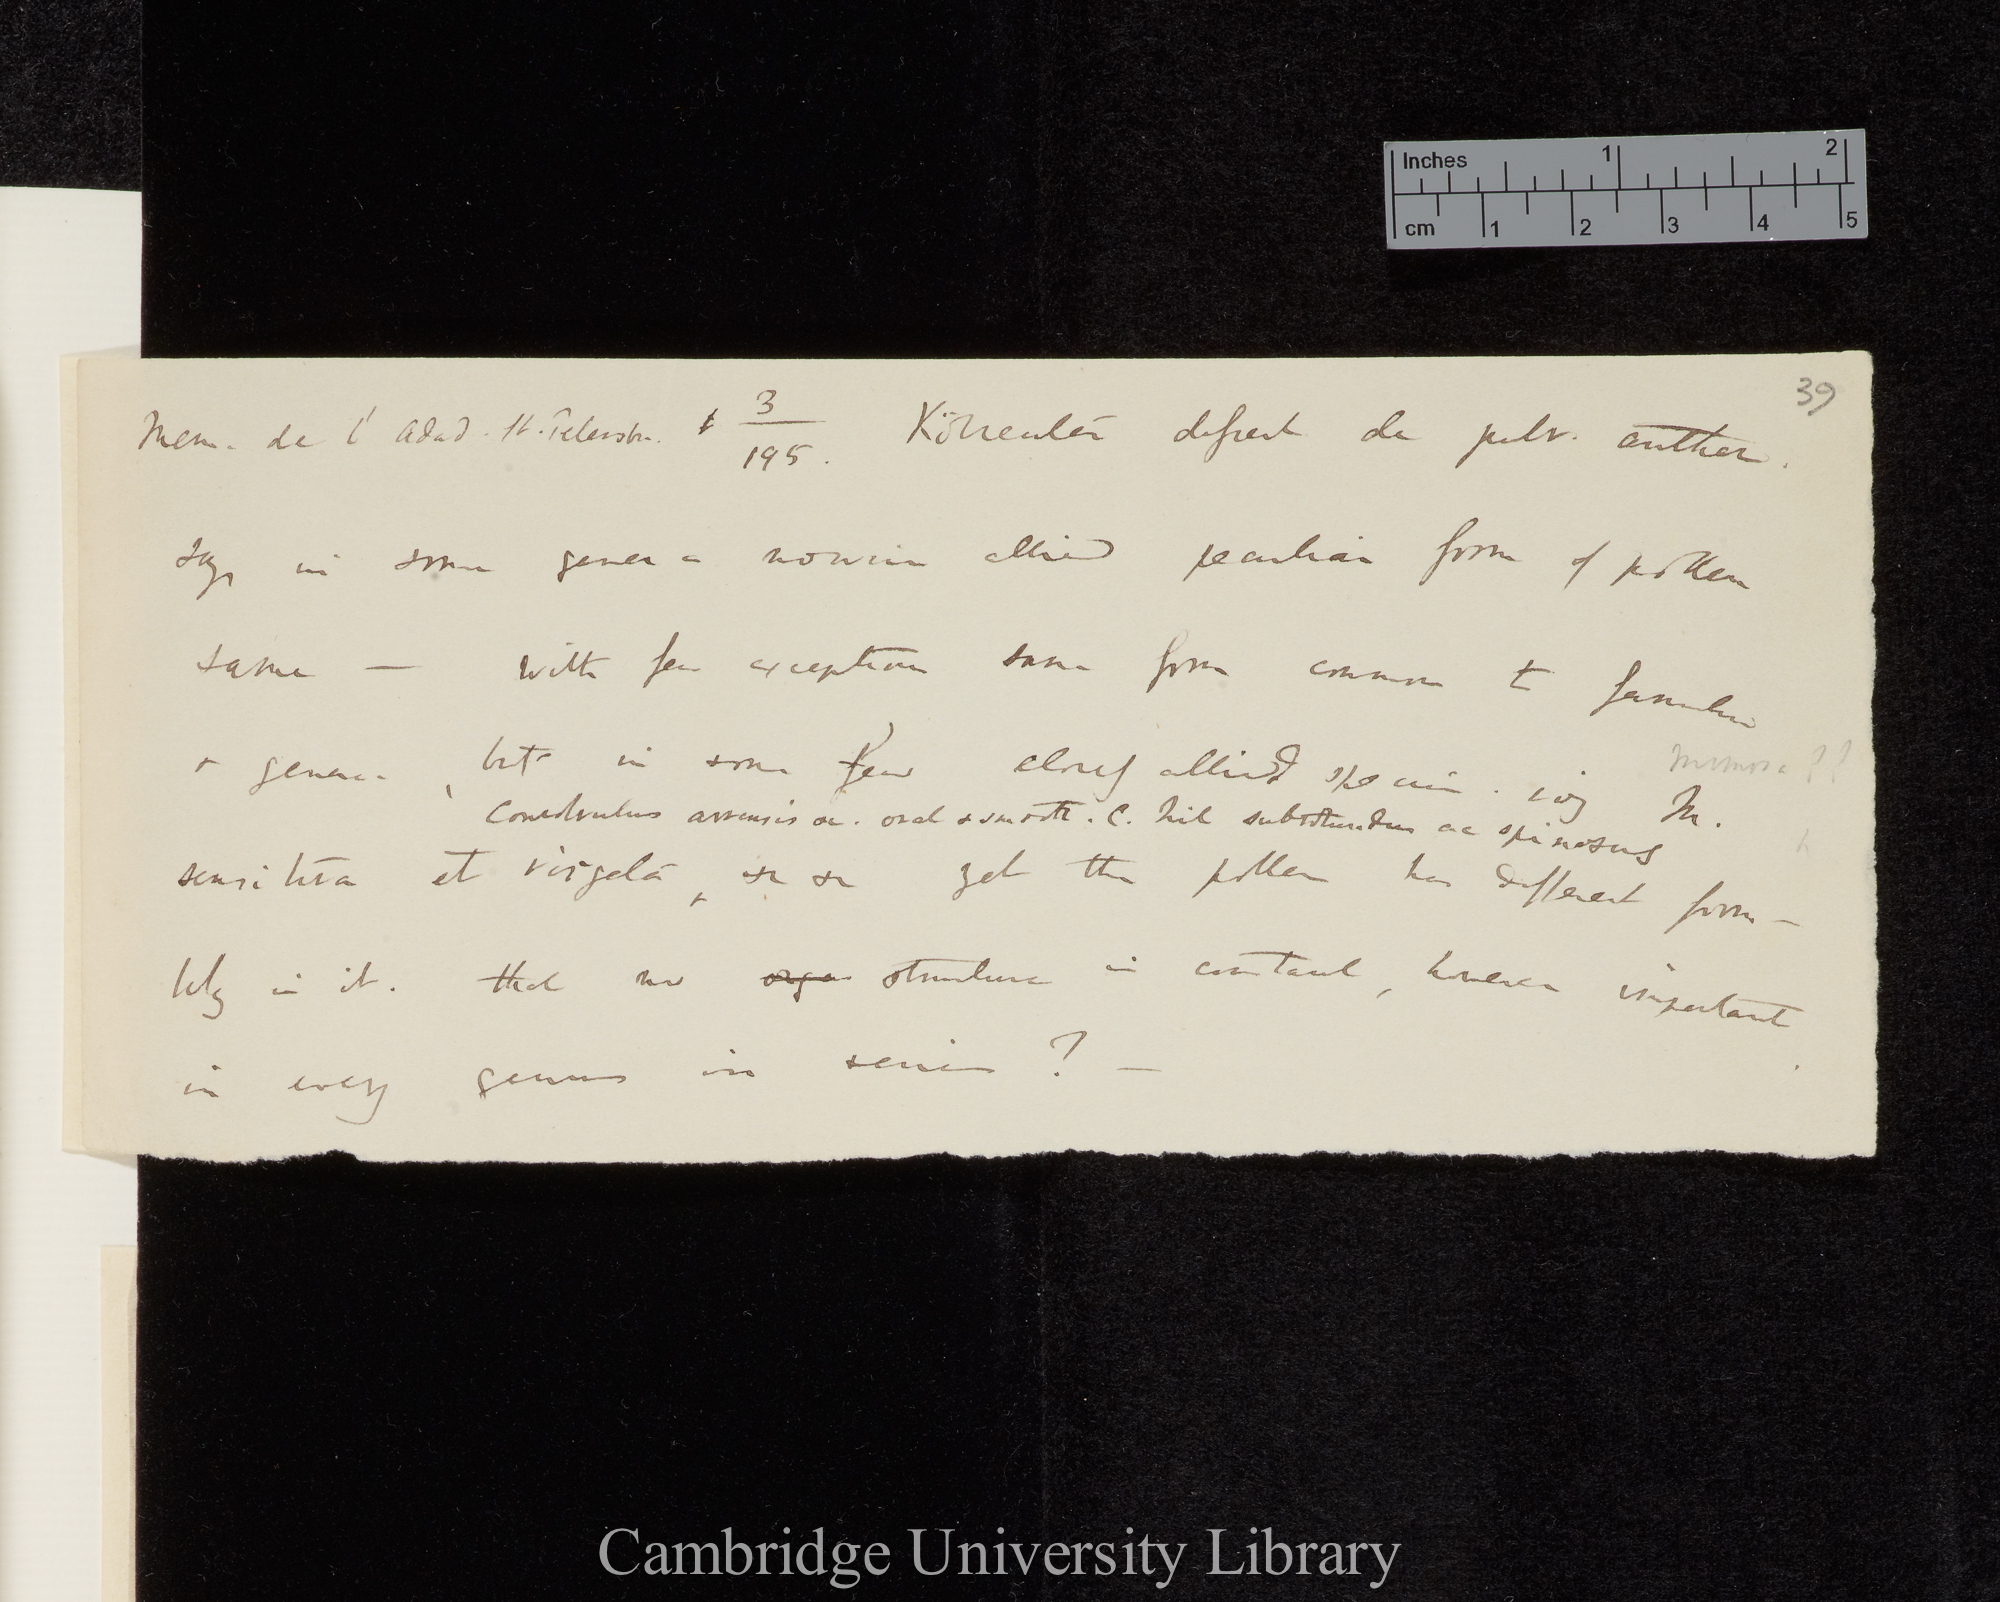 Inches 1 2
cm 1 2 3 4 5
39
Mem. de l' Acad. St. Petersb. 3/195. Kölreuter de pulv. anther.
says in some genera nowise allied peculiar form of pollen
same — with few exceptions same form common to families
& genera, but in some few closely allied species. viz M.
Mimosa??
Convolvulus arvensis &c. oval & smooth. C. subrotundus ac spinosus
sensitiva et virgata, &c &c yet the pollen has different form —
in it. that no orga structure is constant, however important
in every genus in series? —
Cambridge University Library